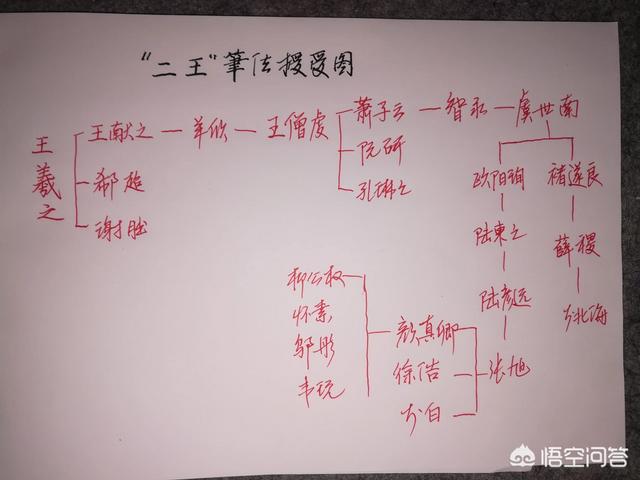 "二王"筆法授受图
王羲之
王献之 — 羊欣 — 王僧虔 — 萧子云 — 智永 — 虞世南
郗超
阮研
谢朏
孔琳之
欧阳询 褚遂良
陆柬之 薛稷
陆彦远 李北海
张旭
颜真卿
徐浩
李白
柳公权
怀素
邬彤
韦玩
悟空问答